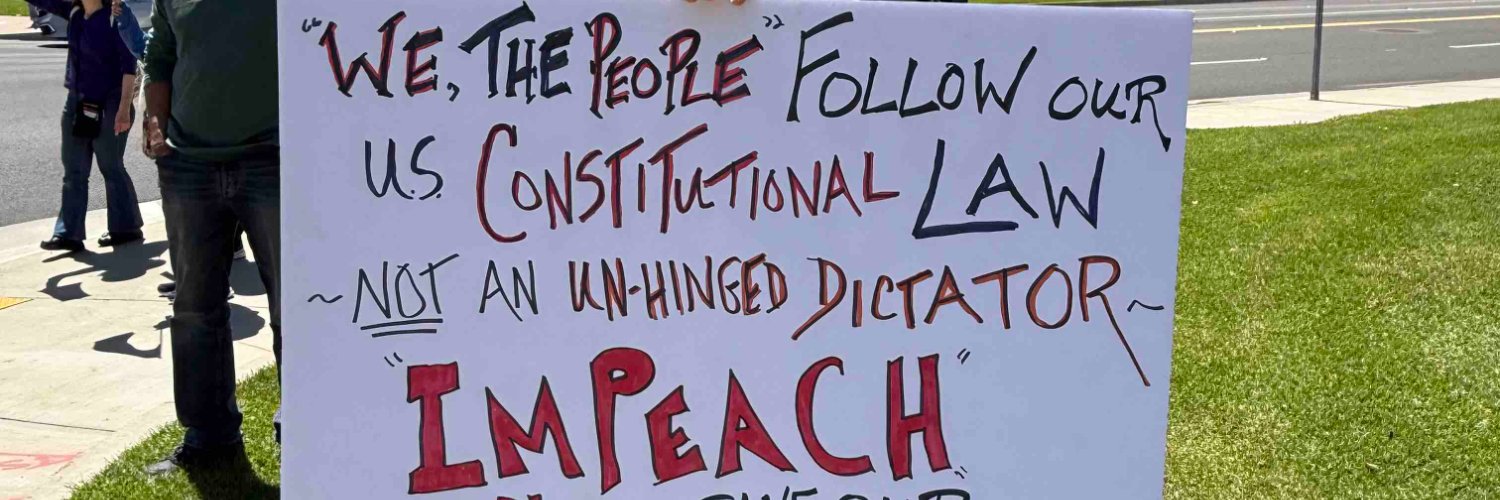 "WE, THE PEOPLE" FOLLOW OUR
U.S. CONSTITUTIONAL LAW
~ NOT AN UN-HINGED DICTATOR ~
"IMPEACH"